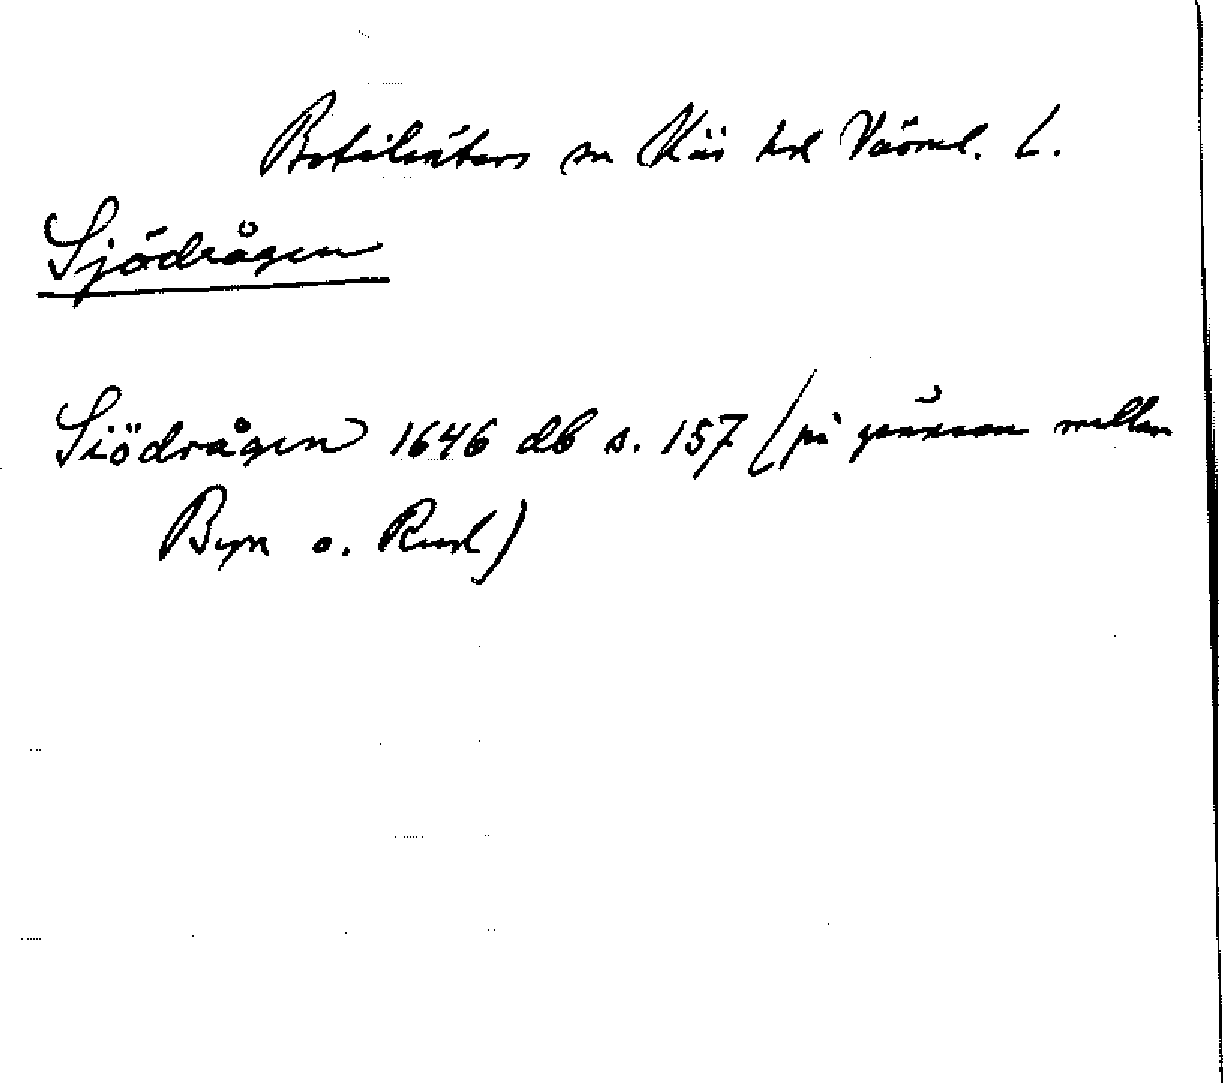 Botilsäters sn Näs hd Värml. l.
Sjödrågen
Siödrågen 1646 db s. 157 (på gränsen mellan
Byn o. Rud)